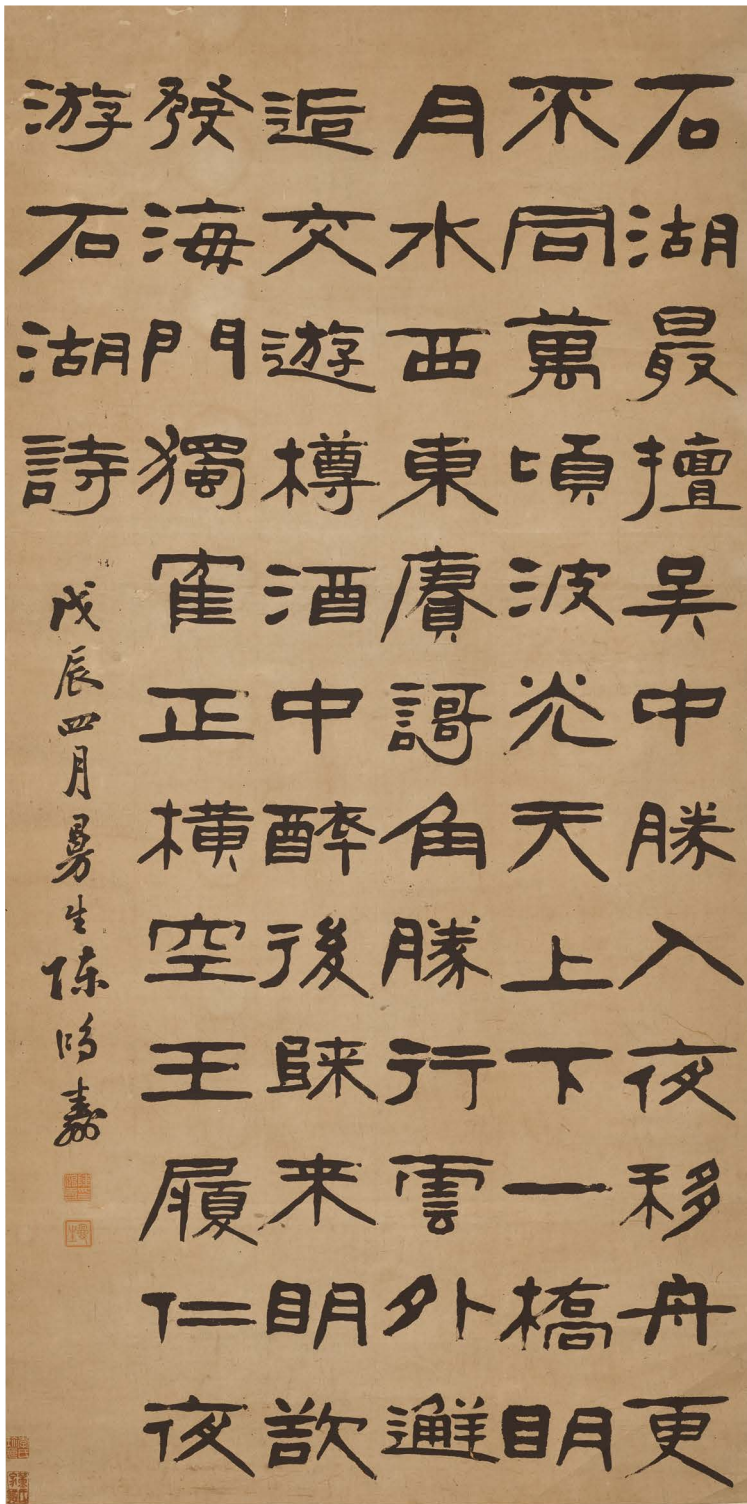 石湖最擅吳中勝入夜移舟更
不同萬頃波光天上下一橋眀
月水西東賡謌角勝行雲外邂
逅交遊樽酒中醉後歸来眀欲
發海門獨寉正橫空王履仁夜
游石湖詩
戊辰四月曼生陳鴻壽